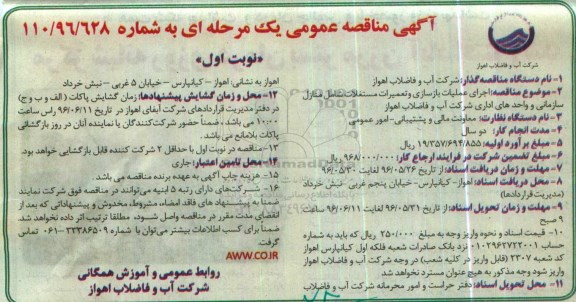 آگهی مناقصه عمومی یک مرحله ای به شماره ۱۱۰/۹۶/۶۲۸
شرکت آب و فاضلاب اهواز
«نوبت اول»
۱- نام دستگاه مناقصه‌گذار: شرکت آب و فاضلاب اهواز
۲- موضوع مناقصه: اجرای عملیات بازسازی و تعمیرات مستغلات شامل منازل
سازمانی و واحد های اداری شرکت آب و فاضلاب اهواز
۳- نام دستگاه نظارت: معاونت مالی و پشتیبانی- امور عمومی
۴- مدت انجام کار: دو سال
۵- مبلغ برآورد اولیه: ۱۹/۳۵۷/۶۹۴/۸۵۵ ریال
۶- مبلغ تضمین شرکت در فرایند ارجاع کار: ۹۶۸/۰۰۰/۰۰۰ ریال
۷- مهلت و زمان دریافت اسناد: از تاریخ ۹۶/۰۵/۲۶ لغایت ۹۶/۰۵/۳۰
۸- محل دریافت اسناد: اهواز- کیانپارس- خیابان پنجم غربی- نبش خرداد
(مدیریت قراردادها)
۹- مهلت و زمان تحویل اسناد: از تاریخ ۹۶/۰۵/۳۱ لغایت ۹۶/۰۶/۱۱ ساعت
۹ صبح
۱۰- قیمت اسناد و نحوه واریز وجه به مبلغ ۲۵۰/۰۰۰ ریال که باید به شماره
حساب ۰۱۰۲۹۶۲۷۲۲۰۰۱ نزد بانک صادرات شعبه فلکه اول کیانپارس اهواز
کد شعبه ۲۳۰۷ (قابل واریز در کلیه شعب) در وجه شرکت آب و فاضلاب اهواز
واریز شود وجه مذکور به هیچ عنوان مسترد نخواهد شد
۱۱- محل تحویل اسناد: دفتر حراست و امور محرمانه شرکت آب و فاضلاب
اهواز به نشانی: اهواز – کیانپارس – خیابان ۵ غربی – نبش خرداد
۱۲- محل و زمان گشایش پیشنهادها: زمان گشایش پاکات (الف و ب و ج)
در دفتر مدیریت قراردادهای شرکت آبفای اهواز در تاریخ ۹۶/۰۶/۱۱ راس ساعت
۱۰:۰۰ می باشد، ضمناً حضور شرکت‌کنندگان یا نماینده آنان در روز بازگشائی
پاکات بلامانع می باشد.
۱۳- مناقصه در نوبت اول با حداقل ۲ شرکت کننده قابل بازگشایی خواهد بود.
۱۴- محل تامین اعتبار: جاری
۱۵- هزینه چاپ آگهی به عهده برنده مناقصه می باشد.
۱۶- شرکت‌های دارای رتبه ۵ ابنیه می‌توانند در مناقصه فوق شرکت نمایند
ضمنا به پیشنهاد های فاقد امضاء، مشروط، مخدوش و پیشنهاداتی که بعد از
انقضای مدت مقرر در مناقصه واصل شود، مطلقا ترتیب اثر داده نخواهد شد.
ضمناً برای کسب اطلاعات بیشتر می‌توان با شماره ۳۳۳۸۶۵۰۹-۰۶۱ تماس
گرفت.
AWW.CO.IR
روابط عمومی و آموزش همگانی
شرکت آب و فاضلاب اهواز